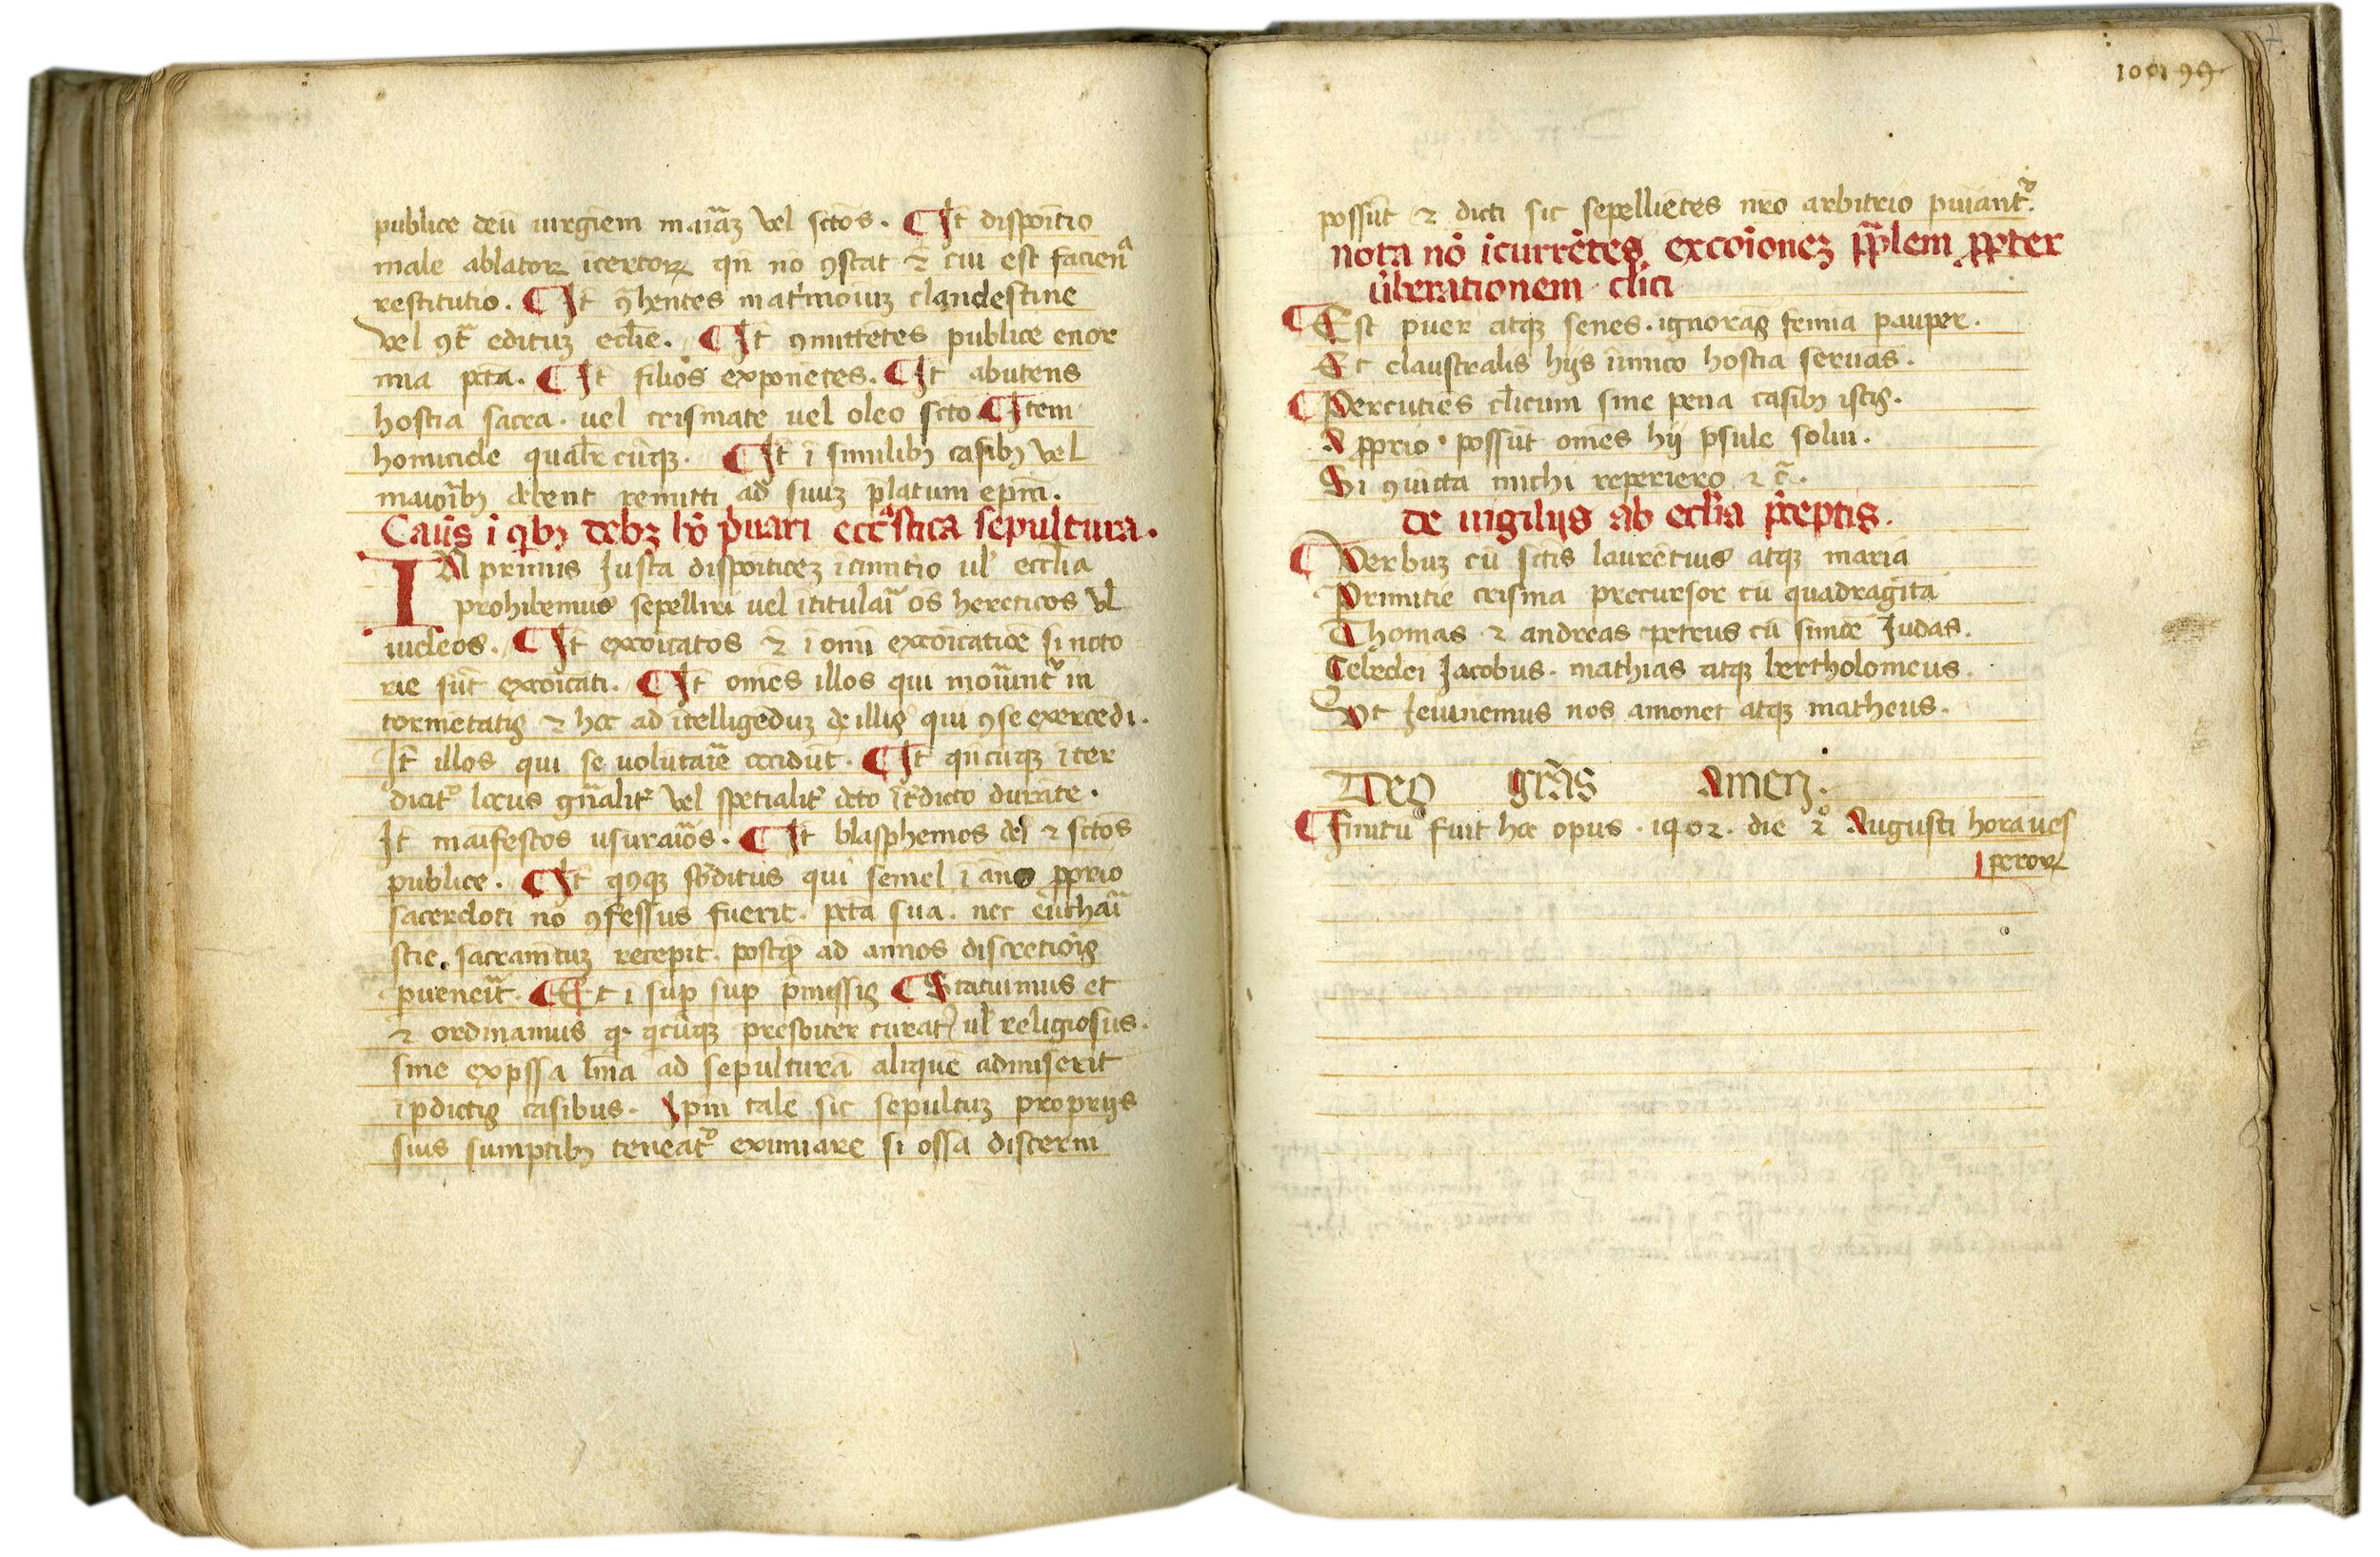 publice deū uirginem mariāz vel sctōs. ¶ It dispoitio
male ablatoꝝ icertoꝝ qn̄ nō ꝯstat ⁊ cui est faciēa
restitutio. ¶ It ꝯhentes mat'imoiuz clandestine
vel ꝯt̄ edituz ecclie. ¶ It ꝯmittētes publice enor
mia pctā. ¶ It filios exponētes. ¶ It abutens
hostia sacra. uel crismate uel oleo scto ¶ Item
homicide qualr̄cūqꝫ. ¶ It ī similibꝫ casibꝫ vel
maioribꝫ debent remitti ad suuz p̄latum ep̄m.
Casus ī qibꝫ debꝫ hō p̄uari ecc̄astica sepultura.
IN primis Justa dispoīticez
prohibemus sepelliri uel ītitulari os hereticos vl̄
iudeos. ¶ It excōicatos ⁊ ī omī excōicatiōe si noto
rie sūt excōicati. ¶ It omēs illos qui moriunt' in
tormētatis ⁊ hoc ad ītelligēduz de illis qui ꝯse exercēdi.
It illos qui se volūtarie occidūt. ¶ It qn̄cūqꝫ īter
dicit' locus gn̄alit' vel spetialit' dcto īt'dicto durāte.
It maīfestos usurarios. ¶ It blasphemos dei ⁊ sctōs
publice. ¶ It qꝯqꝫ sbditus qui semel ī anō ꝓprio
sacerdoti nō ꝯfessus fuerit. pctā sua. nec euchari
stie. sacramētuz recepit. postqꝫ ad annos discretiōis
puenerīt. ¶ Et ī sup sup p̄missis ¶ Statuimus et
⁊ ordinamus qꝫ qcūqꝫ presbiter curat9 ul̄ religiosus.
sine exp̄ssa lnīa ad sepulturā aliquē admiserit
ī p̄dictis casibus. Ip̄m talē sic sepultuz proprijs
suis sumptibꝫ teneat' eximiare si ossa discerni
100 99
possūt ⁊ dicti sic sepelliētes nrō arbitrio puniant'.
nota nō īcurrētes excōionez pp̄lem ꝓpter
ūberationem clīci
¶ Est puer atqꝫ senes. ignorās femīa pauper.
Et claustralis hijs iūnco hostia seruās.
¶ Percutiēs clīcum sine pena casibꝫ istis.
A ꝓprio possūt omēs hij p̄sule solui.
Si ꝯuicta michi reperiero ⁊ c̄.
de uigilijs ab ecclīa p̄ceptis.
¶ Verbuz cū sctīs laurētius atqꝫ maria
Primitie crisma precursor cū quadragīta
Thomas ⁊ andreas petrus cū simōe Judas.
Cebedei Jacobus. mathias atqꝫ bertholomeus.
Vt Jeiunemus nos amonet atqꝫ matheus.
Deo grās Amen.
¶ Finitū fuit hoc opus. 1402. die 2° Augusti hora ues
peroꝝ